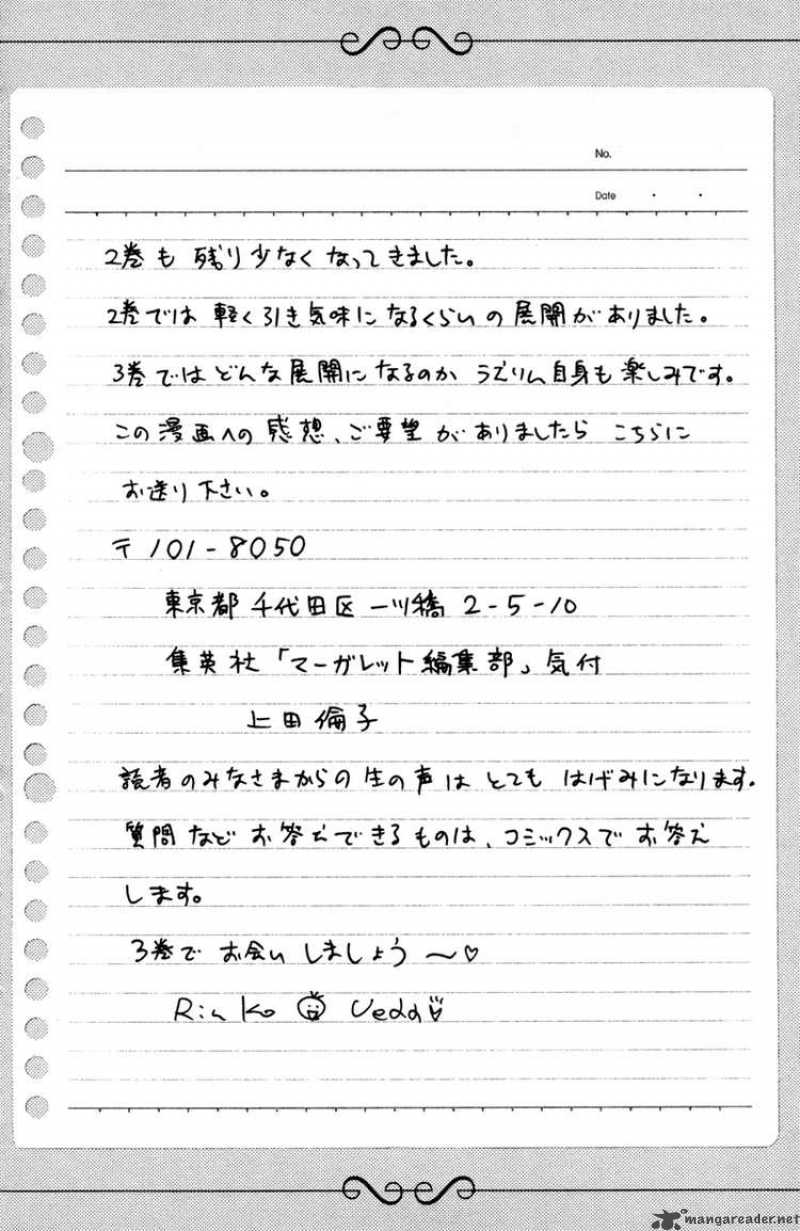 No.
Date ・ ・
2巻も 残り少なくなってきました。
2巻では 軽く引き気味になるくらいの展開がありました。
3巻ではどんな展開になるのか うえりん自身も楽しみです。
この漫画への感想、ご要望がありましたら こちらに
お送り下さい。
〒101-8050
東京都千代田区一ツ橋2-5-10
集英社「マーガレット編集部」気付
上田倫子
読者のみなさまからの生の声は とても はげみになります。
質問など お答えできるものは、コミックスでお答え
します。
3巻で お会いしましょう〜♡
Rinko Ueda
mangareader.net